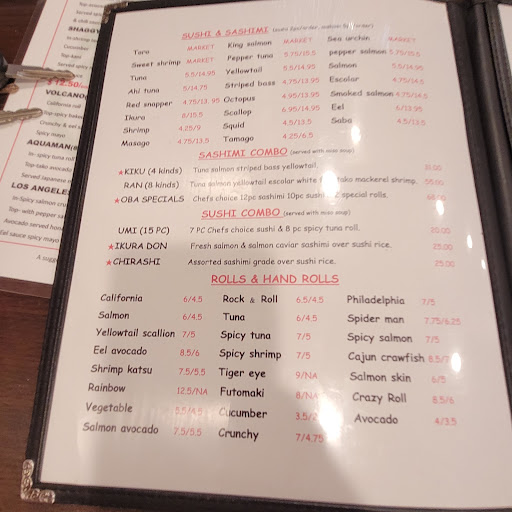 SUSHI & SASHIMI
Toro MARKET
Sweet shrimp MARKET
Tuna 5.5/14.95
Ahi tuna 5/14.75
Red snapper 4.75/13.95
Ikura 8/15.5
Shrimp 4.25/9
Masago 4.75/13.5
King salmon MARKET
Pepper tuna 5.75/15.5
Yellowtail 5.5/14.95
Striped bass 4.75/13.95
Octopus 4.95/13.95
Scallop 6.95/14.95
Squid 4.5/13.5
Tamago 4.25/6.5
Sea urchin MARKET
pepper salmon 5.75/15.5
Salmon 5.5/14.95
Escolar 4.75/14.5
Smoked salmon 4.75/14.5
Eel 6/13.95
Saba 4.5/13.5
SASHIMI COMBO (served with miso soup)
★KIKU (4 kinds) Tuna salmon striped bass yellowtail.
RAN (8 kinds) Tuna salmon yellowtail escolar white tako mackerel shrimp.
★OBA SPECIALS Chefs choice 12pc sashimi 10pc sushi 2 special rolls.
SUSHI COMBO (served with miso soup)
UMI (15 PC) 7 PC Chefs choice sushi & 8 pc spicy tuna roll. 20.00
★IKURA DON Fresh salmon & salmon caviar sashimi over sushi rice. 25.00
★CHIRASHI Assorted sashimi grade over sushi rice. 25.00
ROLLS & HAND ROLLS
California 6/4.5
Salmon 6/4.5
Yellowtail scallion 7/5
Eel avocado 8.5/6
Shrimp katsu 7.5/5.5
Rainbow 12.5/NA
Vegetable 5.5/4.5
Salmon avocado 7.5/5.5
Rock & Roll 6.5/4.5
Tuna 6/4.5
Spicy tuna 7/5
Spicy shrimp 7/5
Tiger eye 9/NA
Futomaki 8/NA
Cucumber
Crunchy 7/4.75
Philadelphia 7/5
Spider man 7.75/6.25
Spicy salmon 7/5
Cajun crawfish
Salmon skin 6/5
Crazy Roll 8.5/6
Avocado 4/3.5
SHAGGY
In-shrimp
Cucumber
Served
12.50
VOLCANO
California roll
Top-spicy baked
Crunchy & eel
Spicy mayo
AQUAMAN
In- spicy tuna roll
Top-tako avocado
Served Japanese
LOS ANGELES
In-Spicy salmon
Top- with pepper
Avocado served
Eel sauce spicy mayo